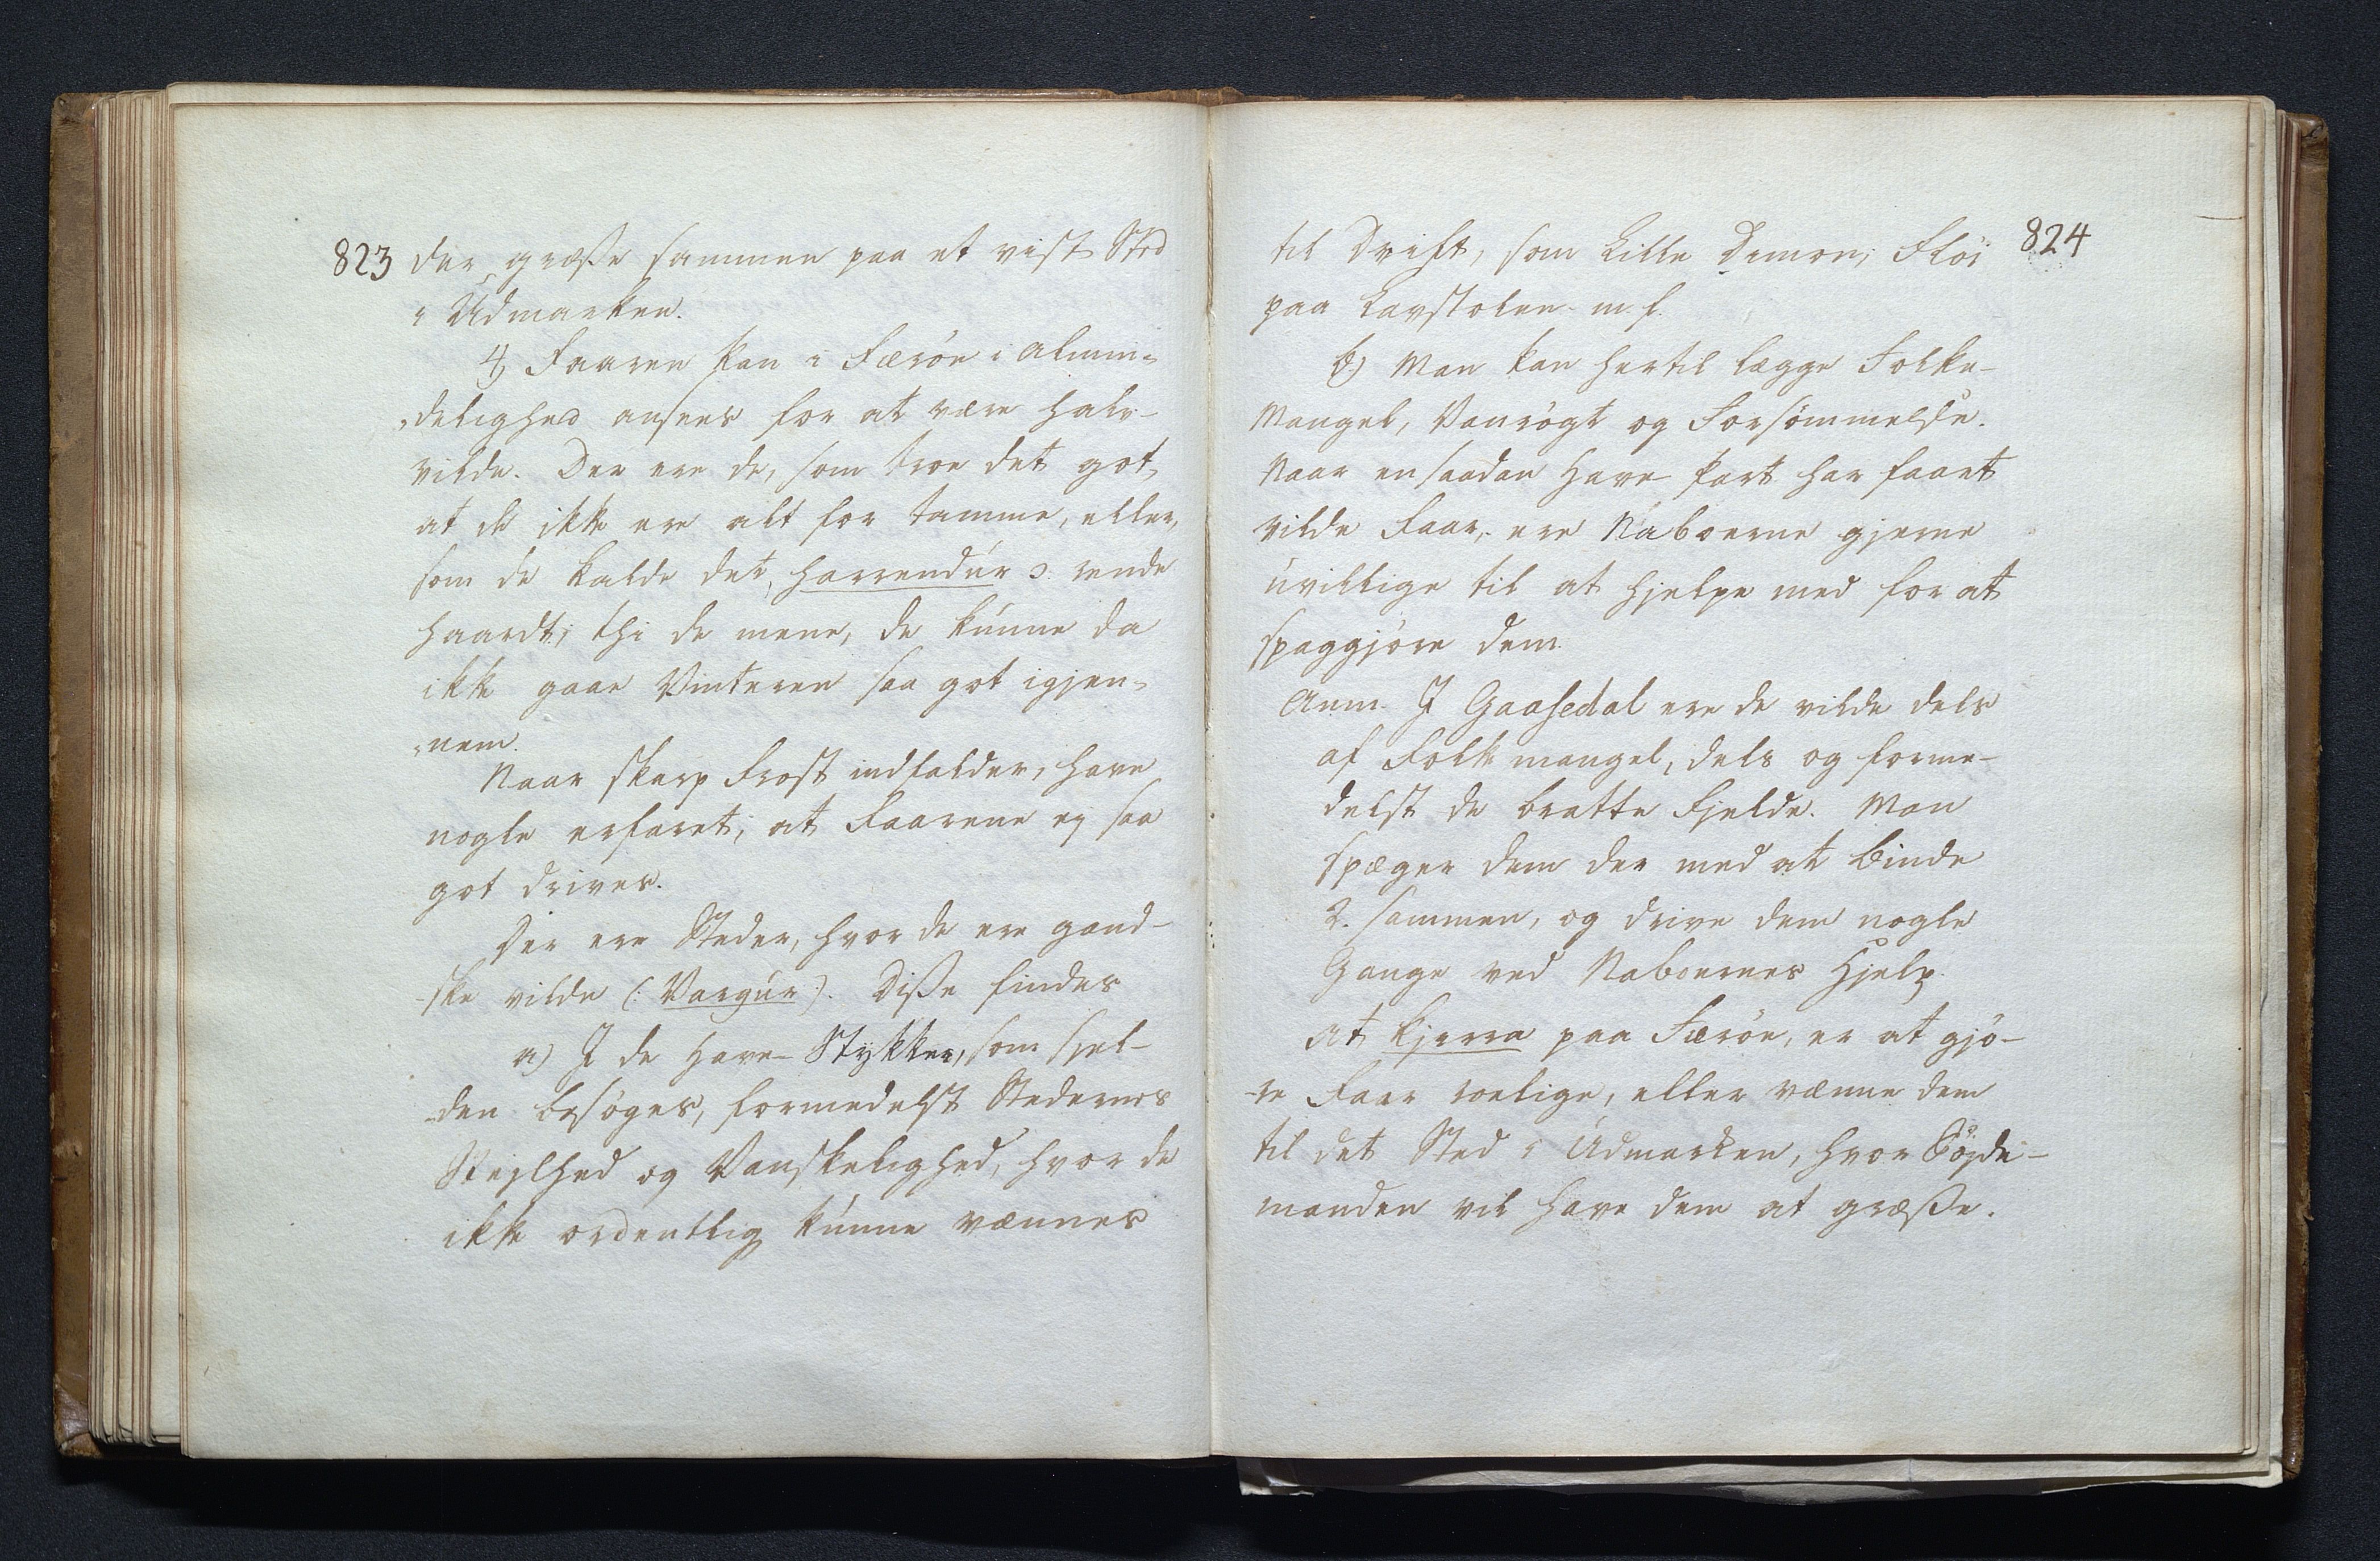 823 der græsse sammen paa et vist Sted
i Udmarken.
4) Faaren kan i Færöe i almin-
-delighed ansees for at være halv-
vilde. Der ere de, som troe det got,
at de ikke ere alt for tamme, eller,
som de kalde det, harrendúr ɔ: rende
haardt; thi de mene, de kúnne da
ikke gaae Vinteren saa got igjen-
-nem.
Naar skarp Frost indfalder, have
nogle erfaret, at Faarene ej saa
got drives.
Der ere Steder, hvor de ere gand-
-ske vilde (: Vargúr :). Disse findes
a) I de Have-Stykker, som sjel-
-den besöges, formedelst Stedernes
Stejlhed og Vanskelighed, hvor de
ikke ordentlig kúnne vænnes
824
til Drift, som Lille Dimon, Flöi
paa Lavstolen m. f.
b) Man kan hertil lægge Folke-
Mangel, Vanrögt og Forsömmelse.
Naar en saadan Have-Part har faaet
vilde Faar, ere Naboerne gjerne
úvillige til at hjelpe med for at
spaggjöre dem.
Anm. I Gaasedal ere de vilde dels
af Folkmangel, dels og forme-
delst de bratte Fjelde. Man
spæger dem der med at binde
2. sammen, og drive dem nogle
Gange ved Naboernes Hjelp.
At kjerra paa Færöe, er at gjö-
-re Faar roelige, eller vænne dem
til det Sted i Údmarken, hvor Böjde-
manden vil have dem at græsse.